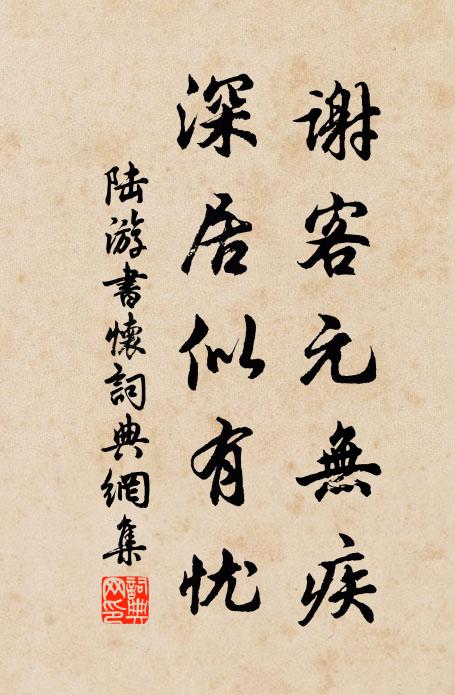 谢客元無疾
深居似有忧
陆游書懷詞典網集
詞典
网印